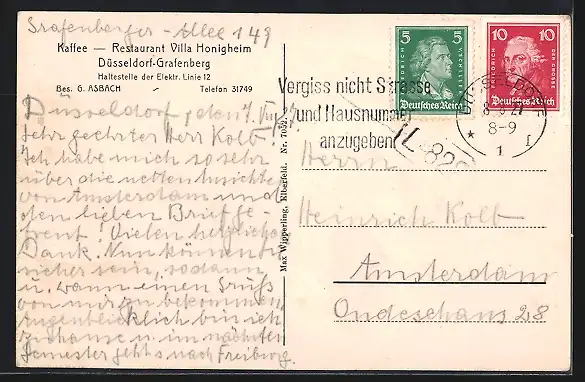 Grafenberger-Allee 149
Kaffee — Restaurant Villa Honigheim
Düsseldorf-Grafenberg
Haltestelle der Elektr. Linie 12
Bes. G. ASBACH
Telefon 31749
Düsseldorf, den 7. VIII.
Sehr geehrter Herr Kolb!
Ich habe mich so sehr
über die netten Ansichten
von Amsterdam und
den lieben Brief ge-
freut! Vielen herzlichen
Dank. Nun können Sie
sicher sein, so dann
u. wann einen Gruß
von mir zu bekommen.
Augenblicklich bin ich
zuhause u. im nächsten
Semester geht's nach Freiburg.
Max Wipperling, Elberfeld. Nr. 7032.
Vergiss nicht Strasse
und Hausnummer
anzugeben
5 5
FRIEDRICH V. SCHILLER
Deutsches Reich
10 10
FRIEDRICH DER GROSSE
Deutsches Reich
DÜSSELDORF
8-9
* 1 f
Herrn
Heinrich Kolb
Amsterdam
Ondeschans 28